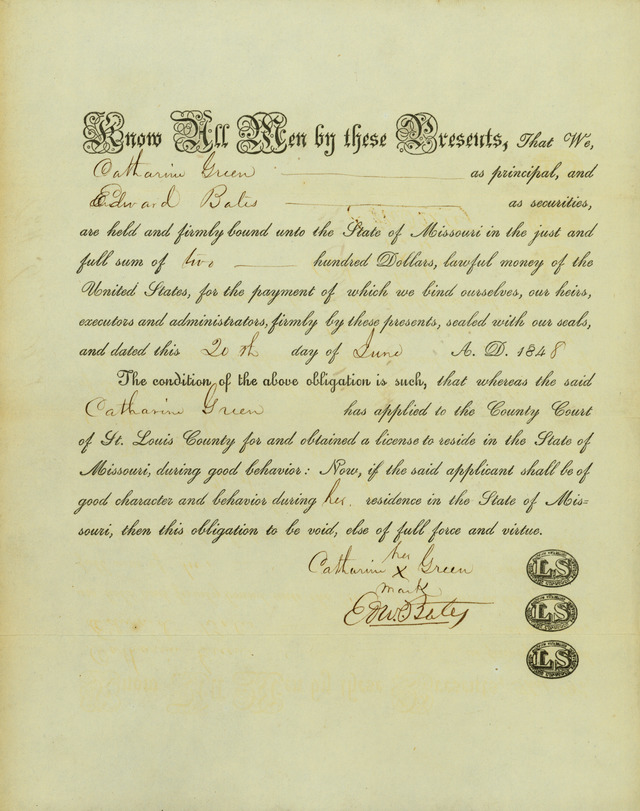 Know All Men by these Presents, That We,
Catharine Green as principal, and
Edward Bates as securities,
are held and firmly bound unto the State of Missouri in the just and
full sum of two hundred Dollars, lawful money of the
United States, for the payment of which we bind ourselves, our heirs,
executors and administrators, firmly by these presents, sealed with our seals,
and dated this 20th day of June A. D. 1848
The condition of the above obligation is such, that whereas the said
Catharine Green has applied to the County Court
of St. Louis County for and obtained a license to reside in the State of
Missouri, during good behavior: Now, if the said applicant shall be of
good character and behavior during her residence in the State of Mis=
souri, then this obligation to be void, else of full force and virtue.
her
Catharine X Green
mark
Edw. Bates
LS
LS
LS